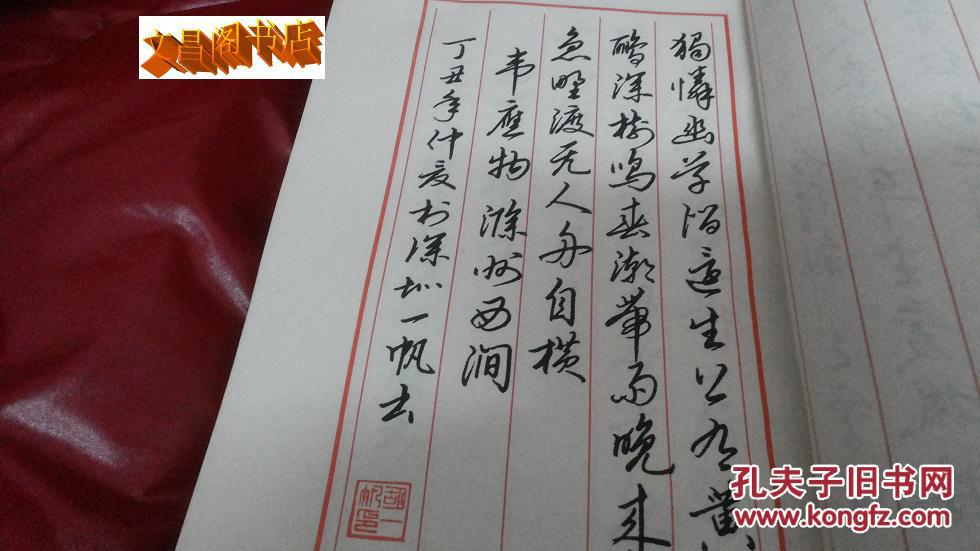 文昌阁书店
独憐幽草澗邊生上有黄
鹂深树鸣春潮带雨晚来
急野渡无人舟自横
韦应物滁州西涧
丁丑年仲夏于深圳一帆书
孔夫子旧书网
www.kongfz.com